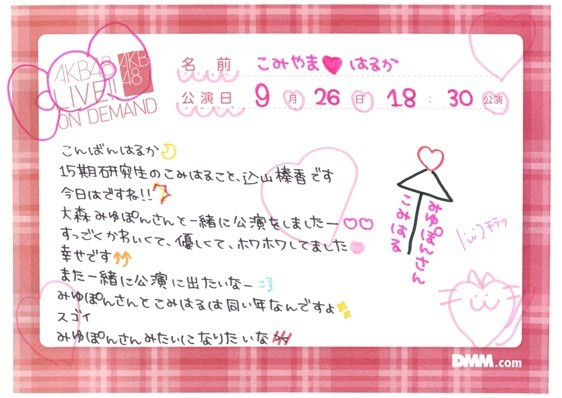 AKB48
LIVE!!
ON DEMAND
AKB
48
名前 こみやま♥はるか
公演日 9月26日 18:30公演
こんばんはるか
15期研究生のこみはること、込山榛香です
今日はですね!!
大森みゆぽんさんと一緒に公演をしましたー♡♡
すっごくかわいくて、優しくて、ホワホワしてました
幸せです
また一緒に公演に出たいなー
みゆぽんさんとこみはるは同い年なんですよ
スゴイ
みゆぽんさんみたいになりたいな
みゆぽんさん
こみはる
チラッ
DMM.com